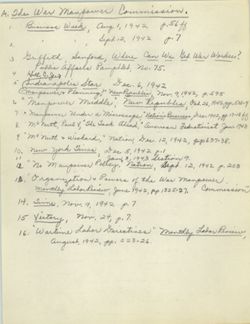 A. The War Manpower Commission.
1. Business Week, Aug 1, 1942 p.56ff
2. " " Sept 12, 1942 p.7
3. Griffith, Sanford, Where Can We Get War Workers?
Public Affairs Pamphlet No. 75.
4. Indianapolis Star Dec. 6, 1942
5. "Manpower Planning," New Republic Nov. 9, 1942, p.595
6. "Manpower Muddle," New Republic, Oct. 26, 1942, pp.
7. "Manpower Under a Nation's Business, Dec. 1942, pp.
8. McNutt, Paul V. "The Task Ahead," American Federationist Jan. 1943
9. "McNutt & Wickard," Nation, Dec. 12, 1942, pp. 637-38.
10. New York Times Dec. 8, 1942 p.1
11. " " " Jan 3, 1943 Section 4.
12. "No Manpower Policy," Nation, Sept. 12, 1942 p. 203
13. "Organization & Powers of the War Manpower Commission"
Monthly Labor Review June 1942, pp.
14. Time, Nov. 9, 1942 p.7
15. Victory, Nov. 24, p.7.
16. "Wartime Labor Directives" Monthly Labor Review,
August, 1942, pp. 223-26.